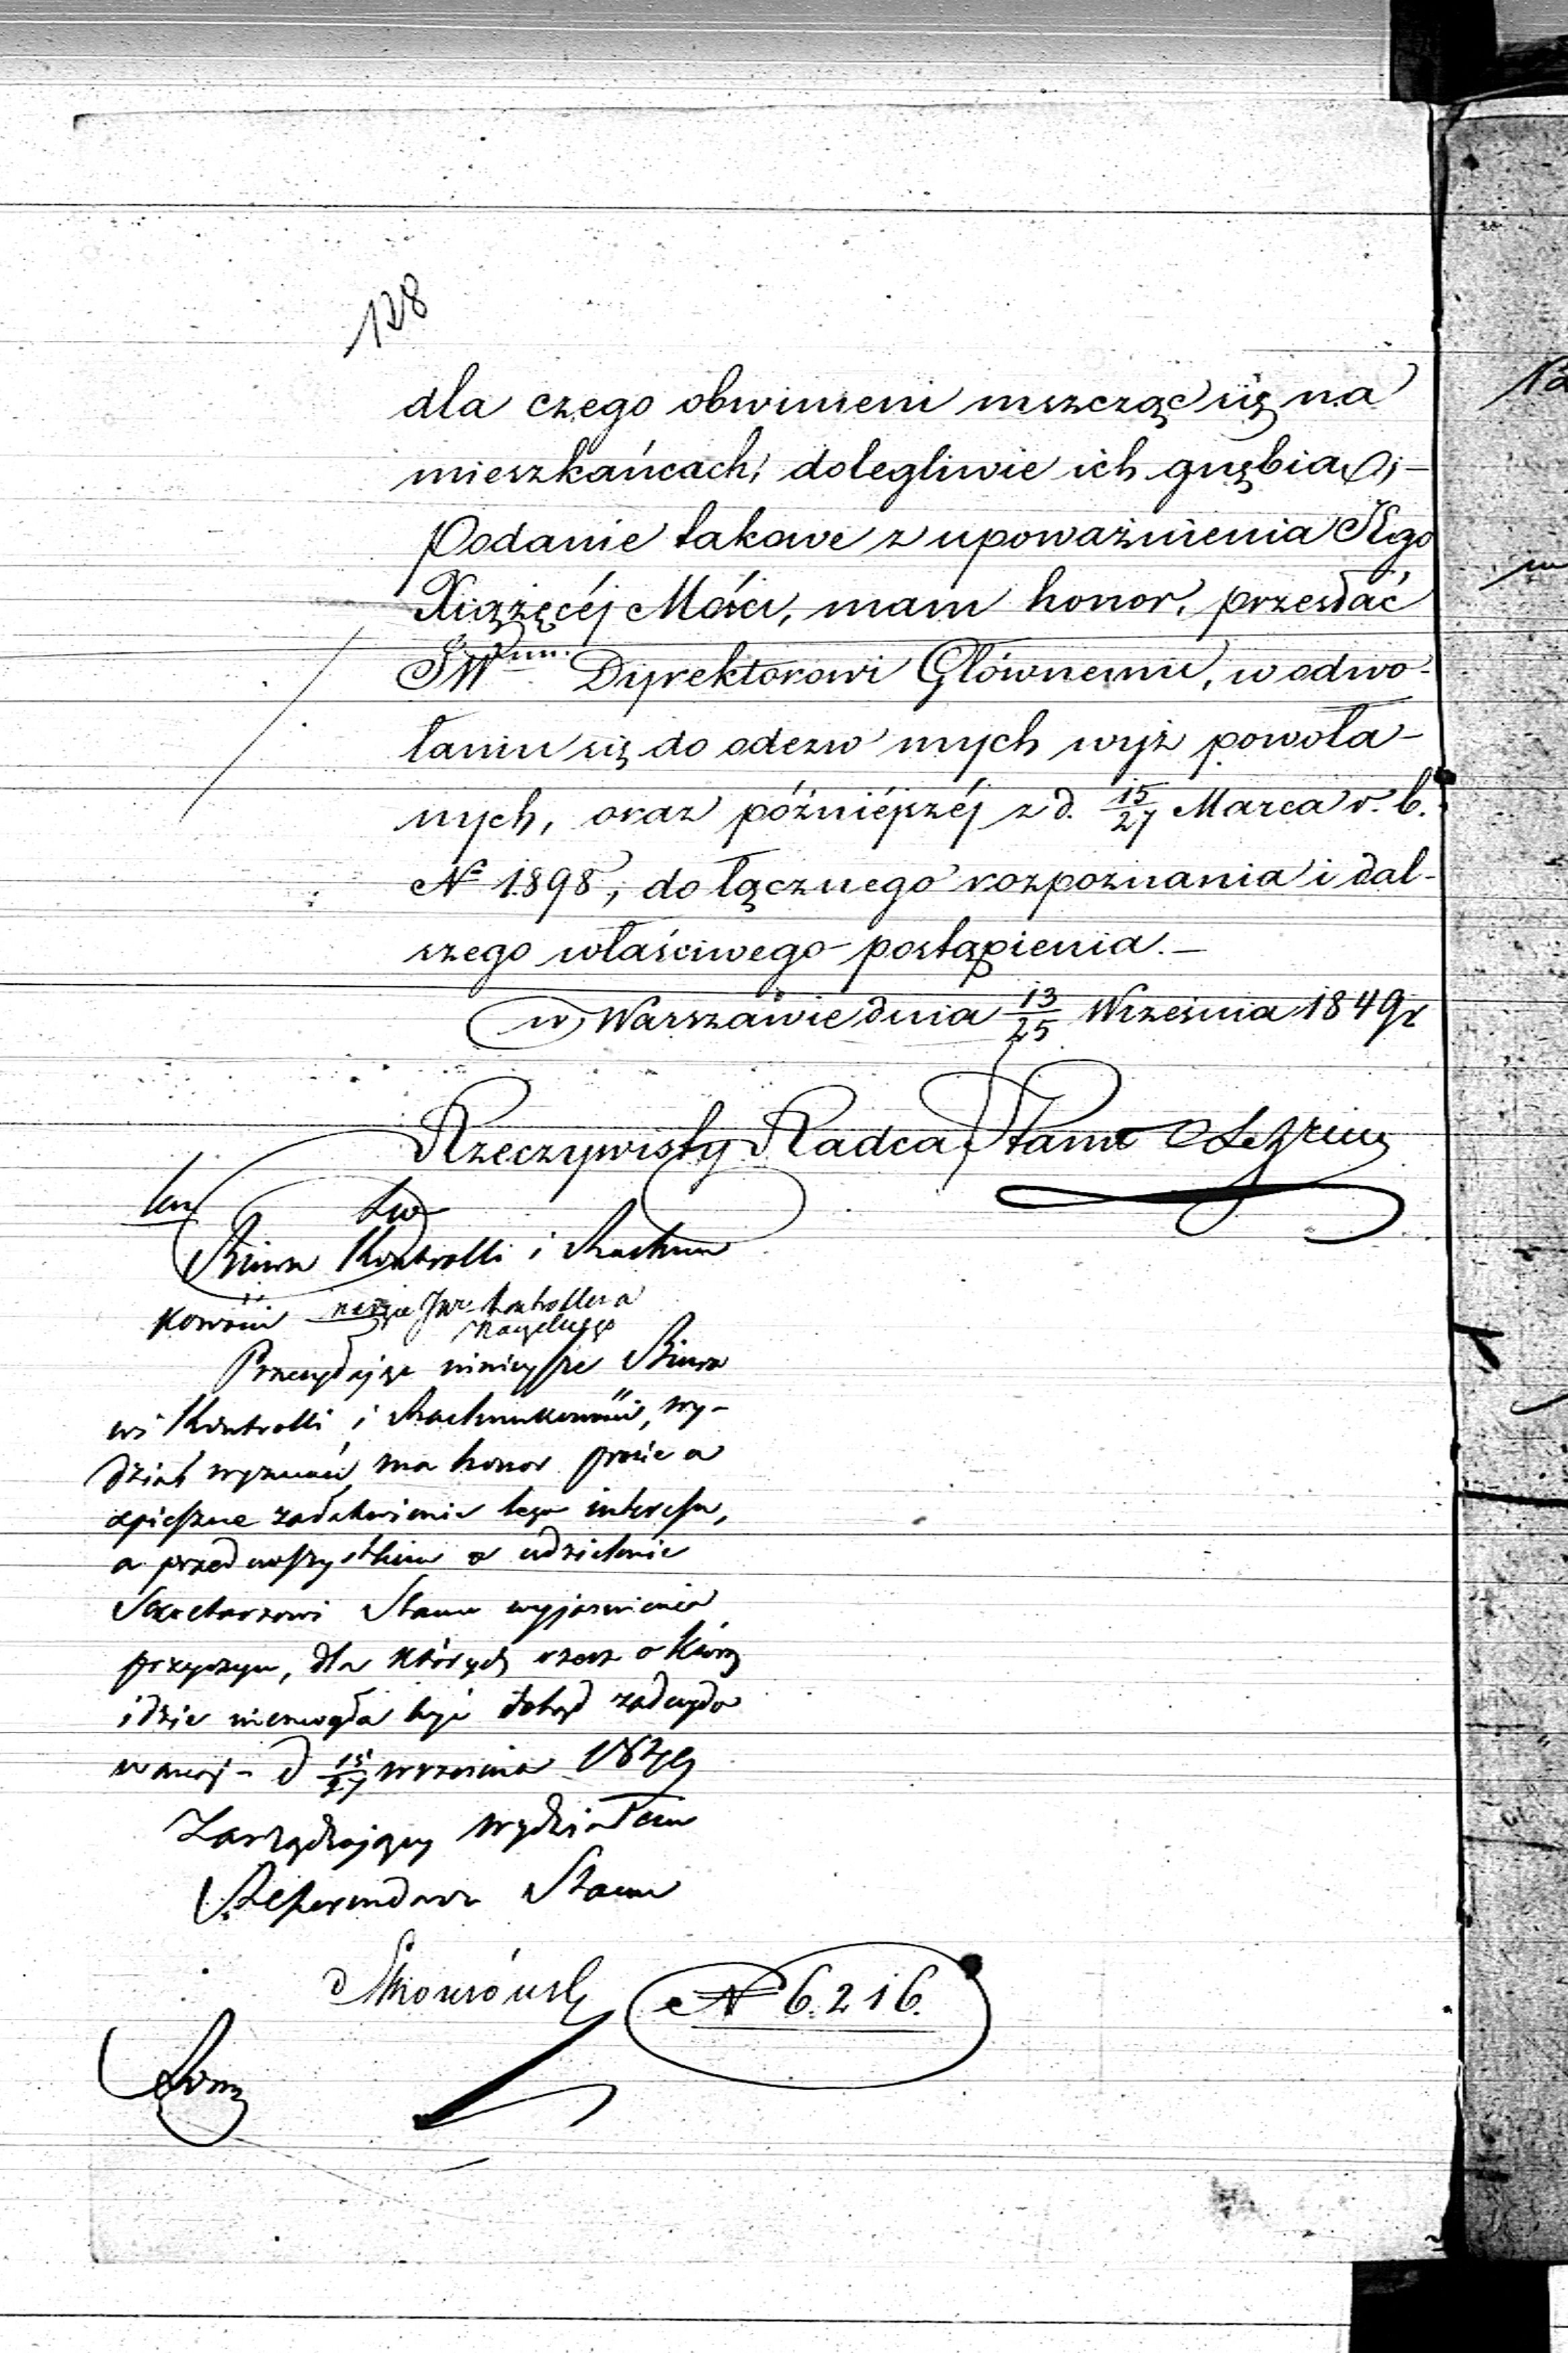 128
dla czego obwinieni mszcząc się na
mieszkańcach, dolegliwie ich gnębią;—
Podanie takowe z upoważnienia Jego
Xiążęcéj Mości, mam honor, przesłać
JW Dyrektorowi Głównemu, w odwo-
łaniu się do odezw mych wyż powoła-
nych, oraz późniéjszéj z d. 15/27 Marca r. b.
№ 1898, do łącznego rozpoznania i dal-
szego właściwego postąpienia.—
w Warszawie dnia 13/25 Września 1849 r
Rzeczywisty Radca Stanu
Biura Kontrolli i Rachun
kowości na ręce JW Kontrollera
Naczelnego
Przesyłając niniejsze Biuro
wi Kontrolli i Rachunkowości, Wy-
dział wyznań ma honor prosić o
spieszne załatwienie tego interesu,
a przedewszystkiem o udzielenie
Sekretarzowi Stanu wyjaśnienia
przyczyn, dla których rzecz o którą
idzie niemogła być dotąd zadecydo
waną – d 15/27 września 1849
Zarządzający Wydziałem
Referendarz Stanu
№ 6.216.